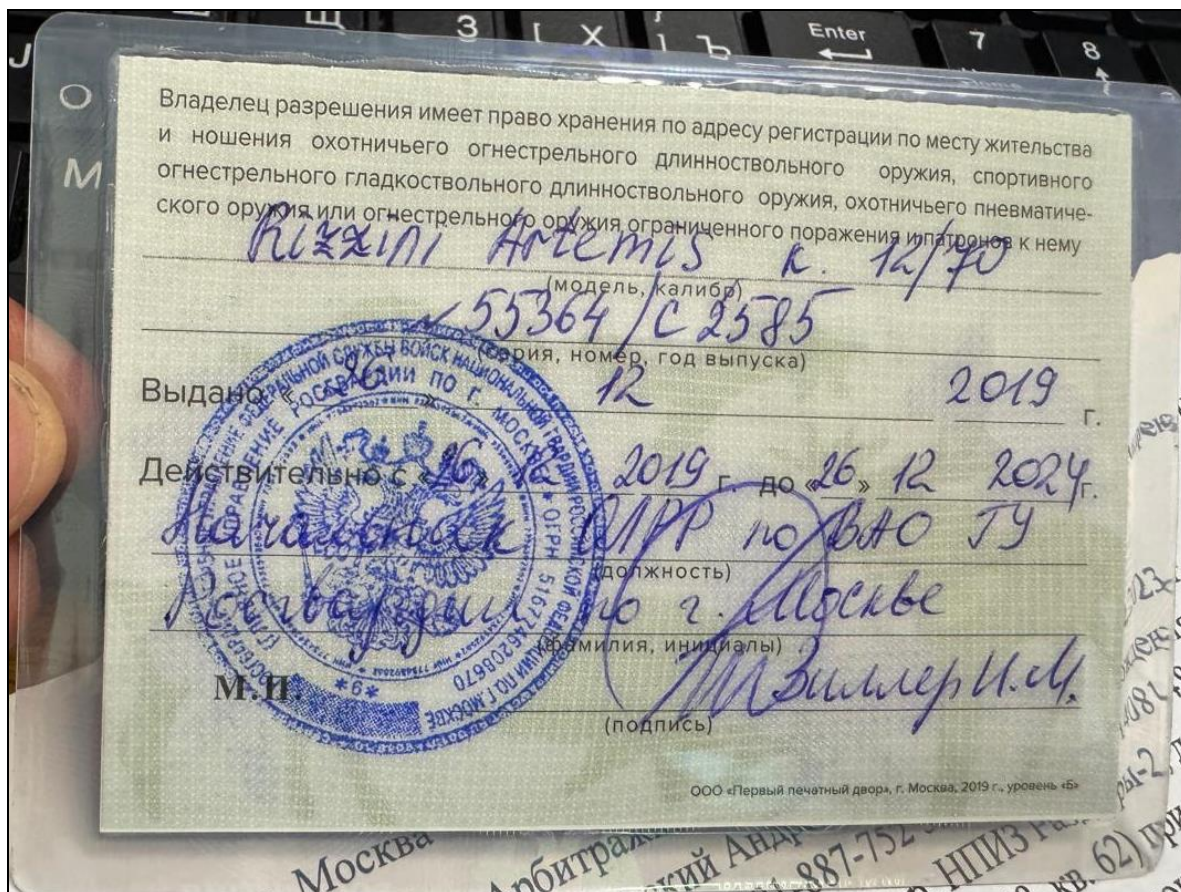 З Х Ъ Enter 7 8
Владелец разрешения имеет право хранения по адресу регистрации по месту жительства
и ношения охотничьего огнестрельного длинноствольного оружия, спортивного
огнестрельного гладкоствольного длинноствольного оружия, охотничьего пневматиче-
ского оружия или огнестрельного оружия ограниченного поражения и патронов к нему
Rizzini Artemis к. 12/70
(модель, калибр)
55364/С2585
(серия, номер, год выпуска)
Выдано «26» 12 2019 г.
Действительно с «26» 12 2019 г. до «26» 12 2024г.
Начальник ОЛРР по ВАО ГУ
(должность)
Росгвардии по г. Москве
(фамилия, инициалы)
М.П. Зиллер И.М.
(подпись)
ООО «Первый печатный двор», г. Москва, 2019 г., уровень «Б»
Москва
887-752
НПИЗ
кв. 62)